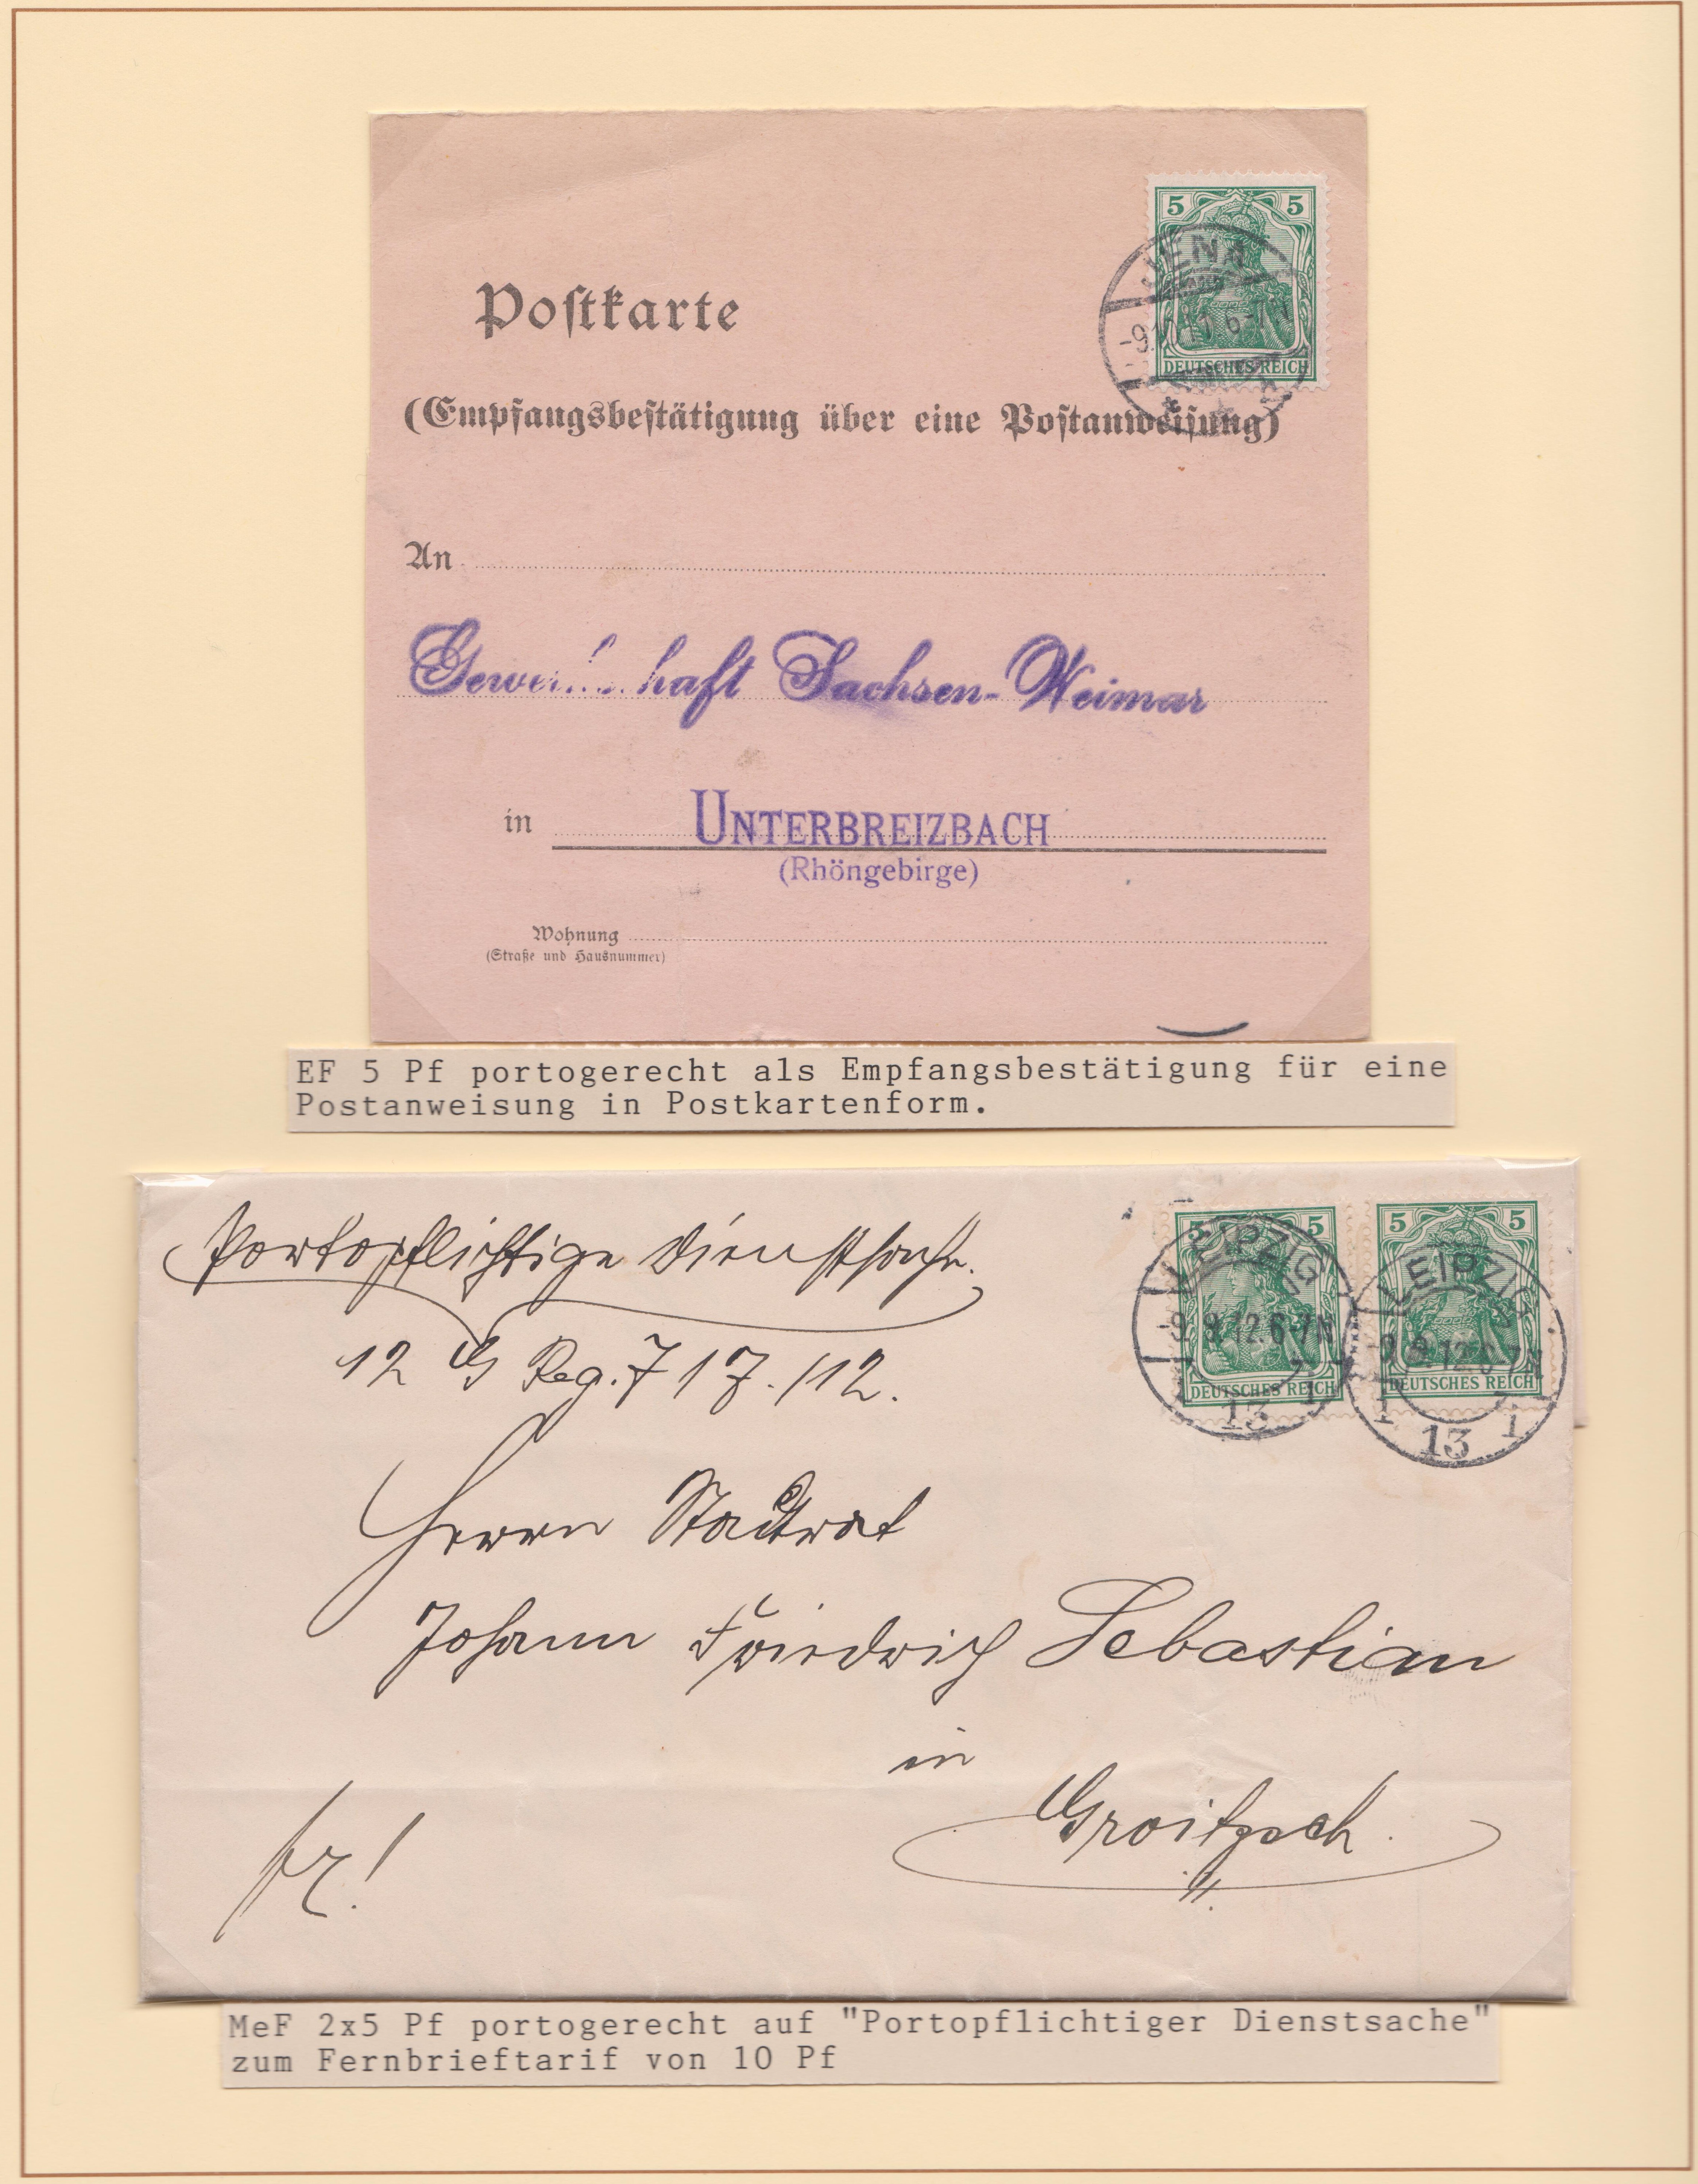 5 5
DEUTSCHES REICH
JENA
Postkarte
(Empfangsbestätigung über eine Postanweisung)
An
Sachsen-Weimar
in UNTERBREIZBACH
(Rhöngebirge)
Wohnung
(Straße und Hausnummer)
EF 5 Pf portogerecht als Empfangsbestätigung für eine
Postanweisung in Postkartenform.
5 5
DEUTSCHES REICH
LEIPZIG
9.9.12.6-7N
1 13 1
5 5
DEUTSCHES REICH
LEIPZIG
9.9.12.6-7N
1 13 1
Portopflichtige Dienstsache.
12 Reg. 717./12.
Herrn Stadtrat
Johann Friedrich Sebastian
in
Groitzsch.
fr!
MeF 2x5 Pf portogerecht auf "Portopflichtiger Dienstsache"
zum Fernbrieftarif von 10 Pf